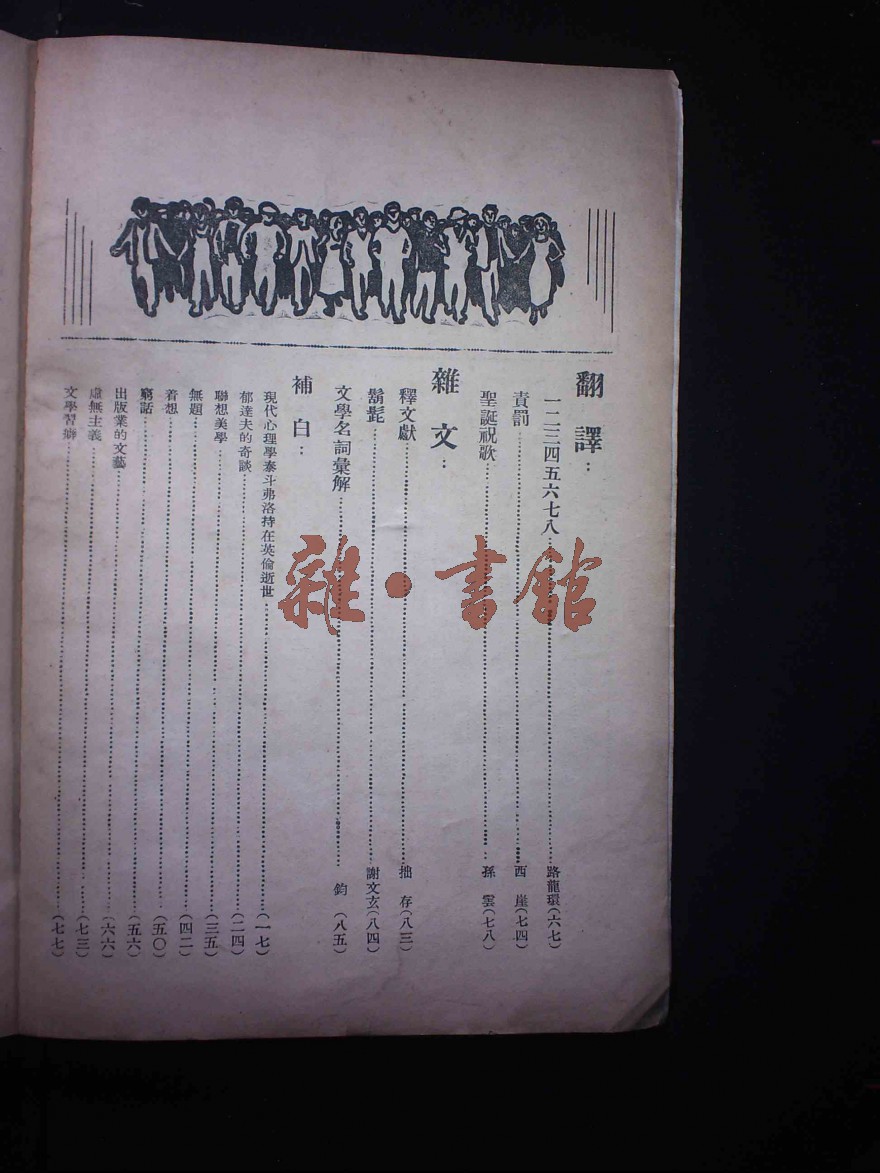 翻譯：
一二三四五六七八……路龍環(六七)
責罰……西崖(七四)
聖誕祝歌……孫雲(七八)
雜文：
釋文獻……拙存(八三)
鬍髭……謝文玄(八四)
文學名詞彙解……鈞(八五)
補白：
現代心理學泰斗弗洛特在英倫逝世……(一七)
郁達夫的奇談……(二四)
聯想美學……(三五)
無題……(四二)
着想……(五〇)
窮話……(五六)
出版業的文藝……(六六)
虛無主義……(七三)
文學習癖……(七七)
雜·書館